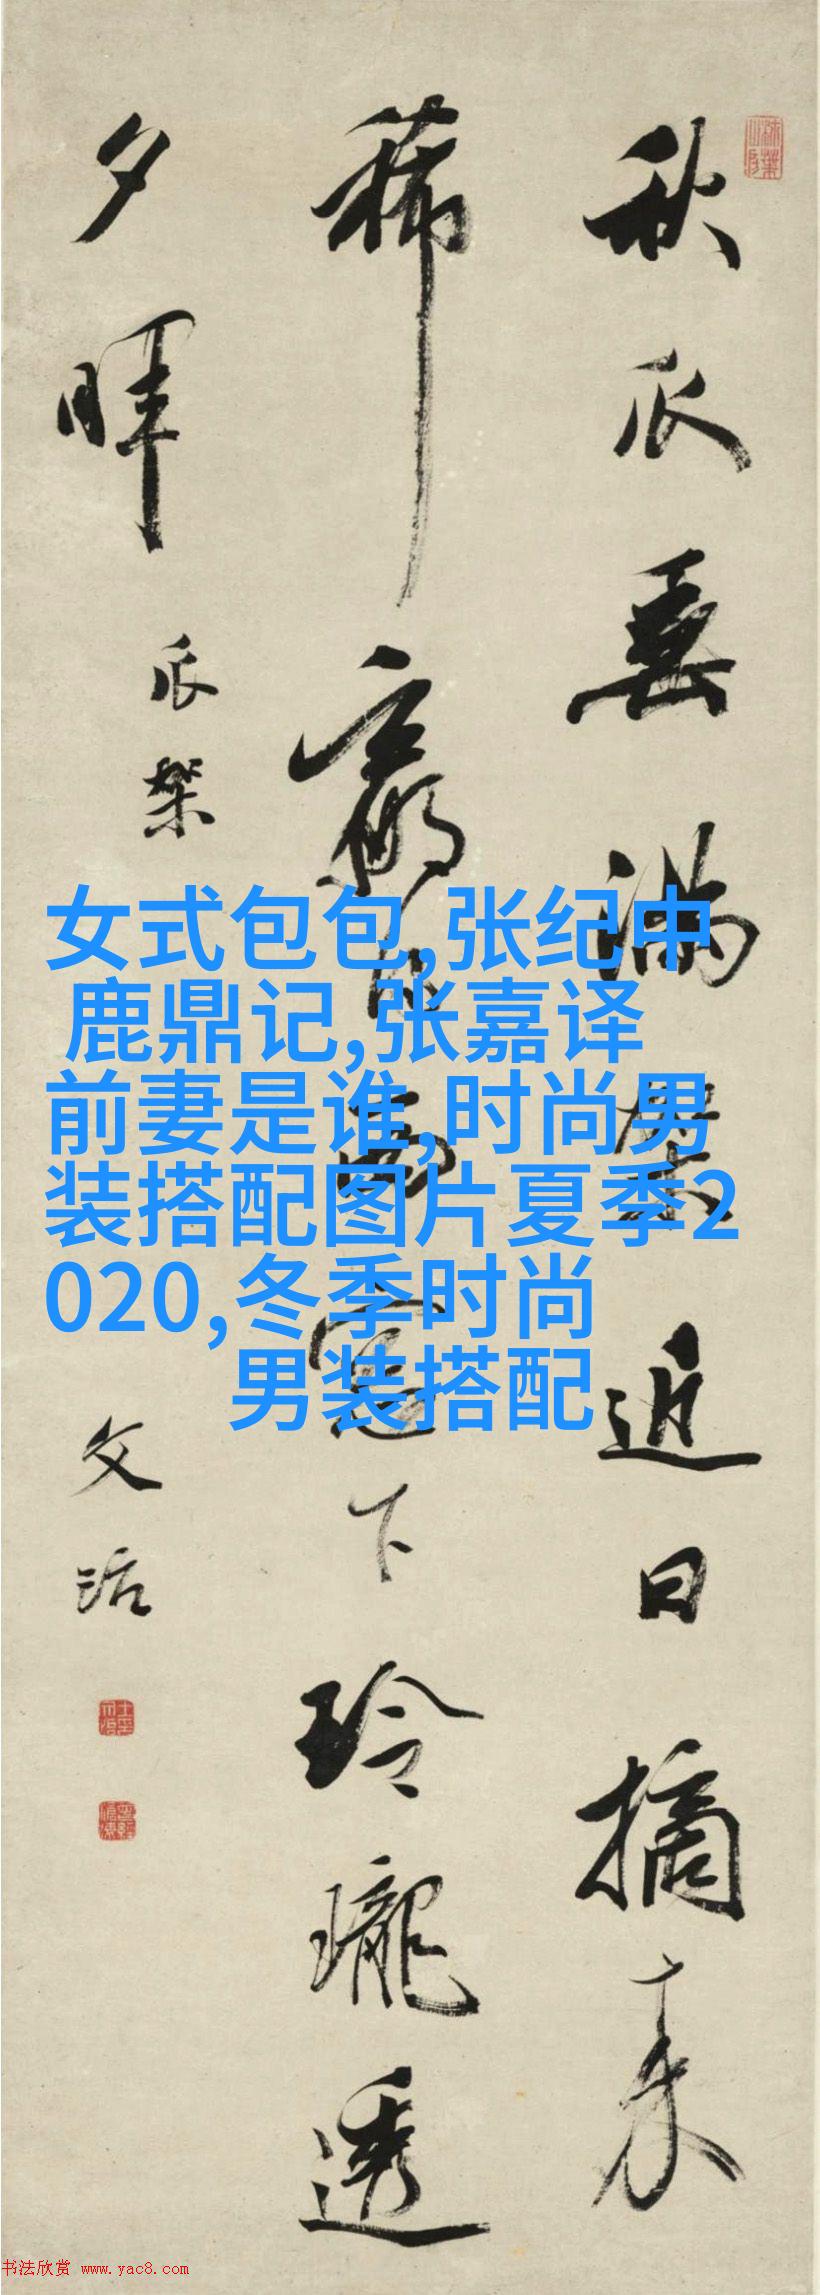 秋瓜垂滿架近日摘来
稀贏得西窓下玲瓏透
夕暉
瓜架
文治
女式包包,张纪中
鹿鼎记,张嘉译
前妻是谁,时尚男
装搭配图片夏季2
020,冬季时尚
男装搭配
书法欣赏 www.yac8.com